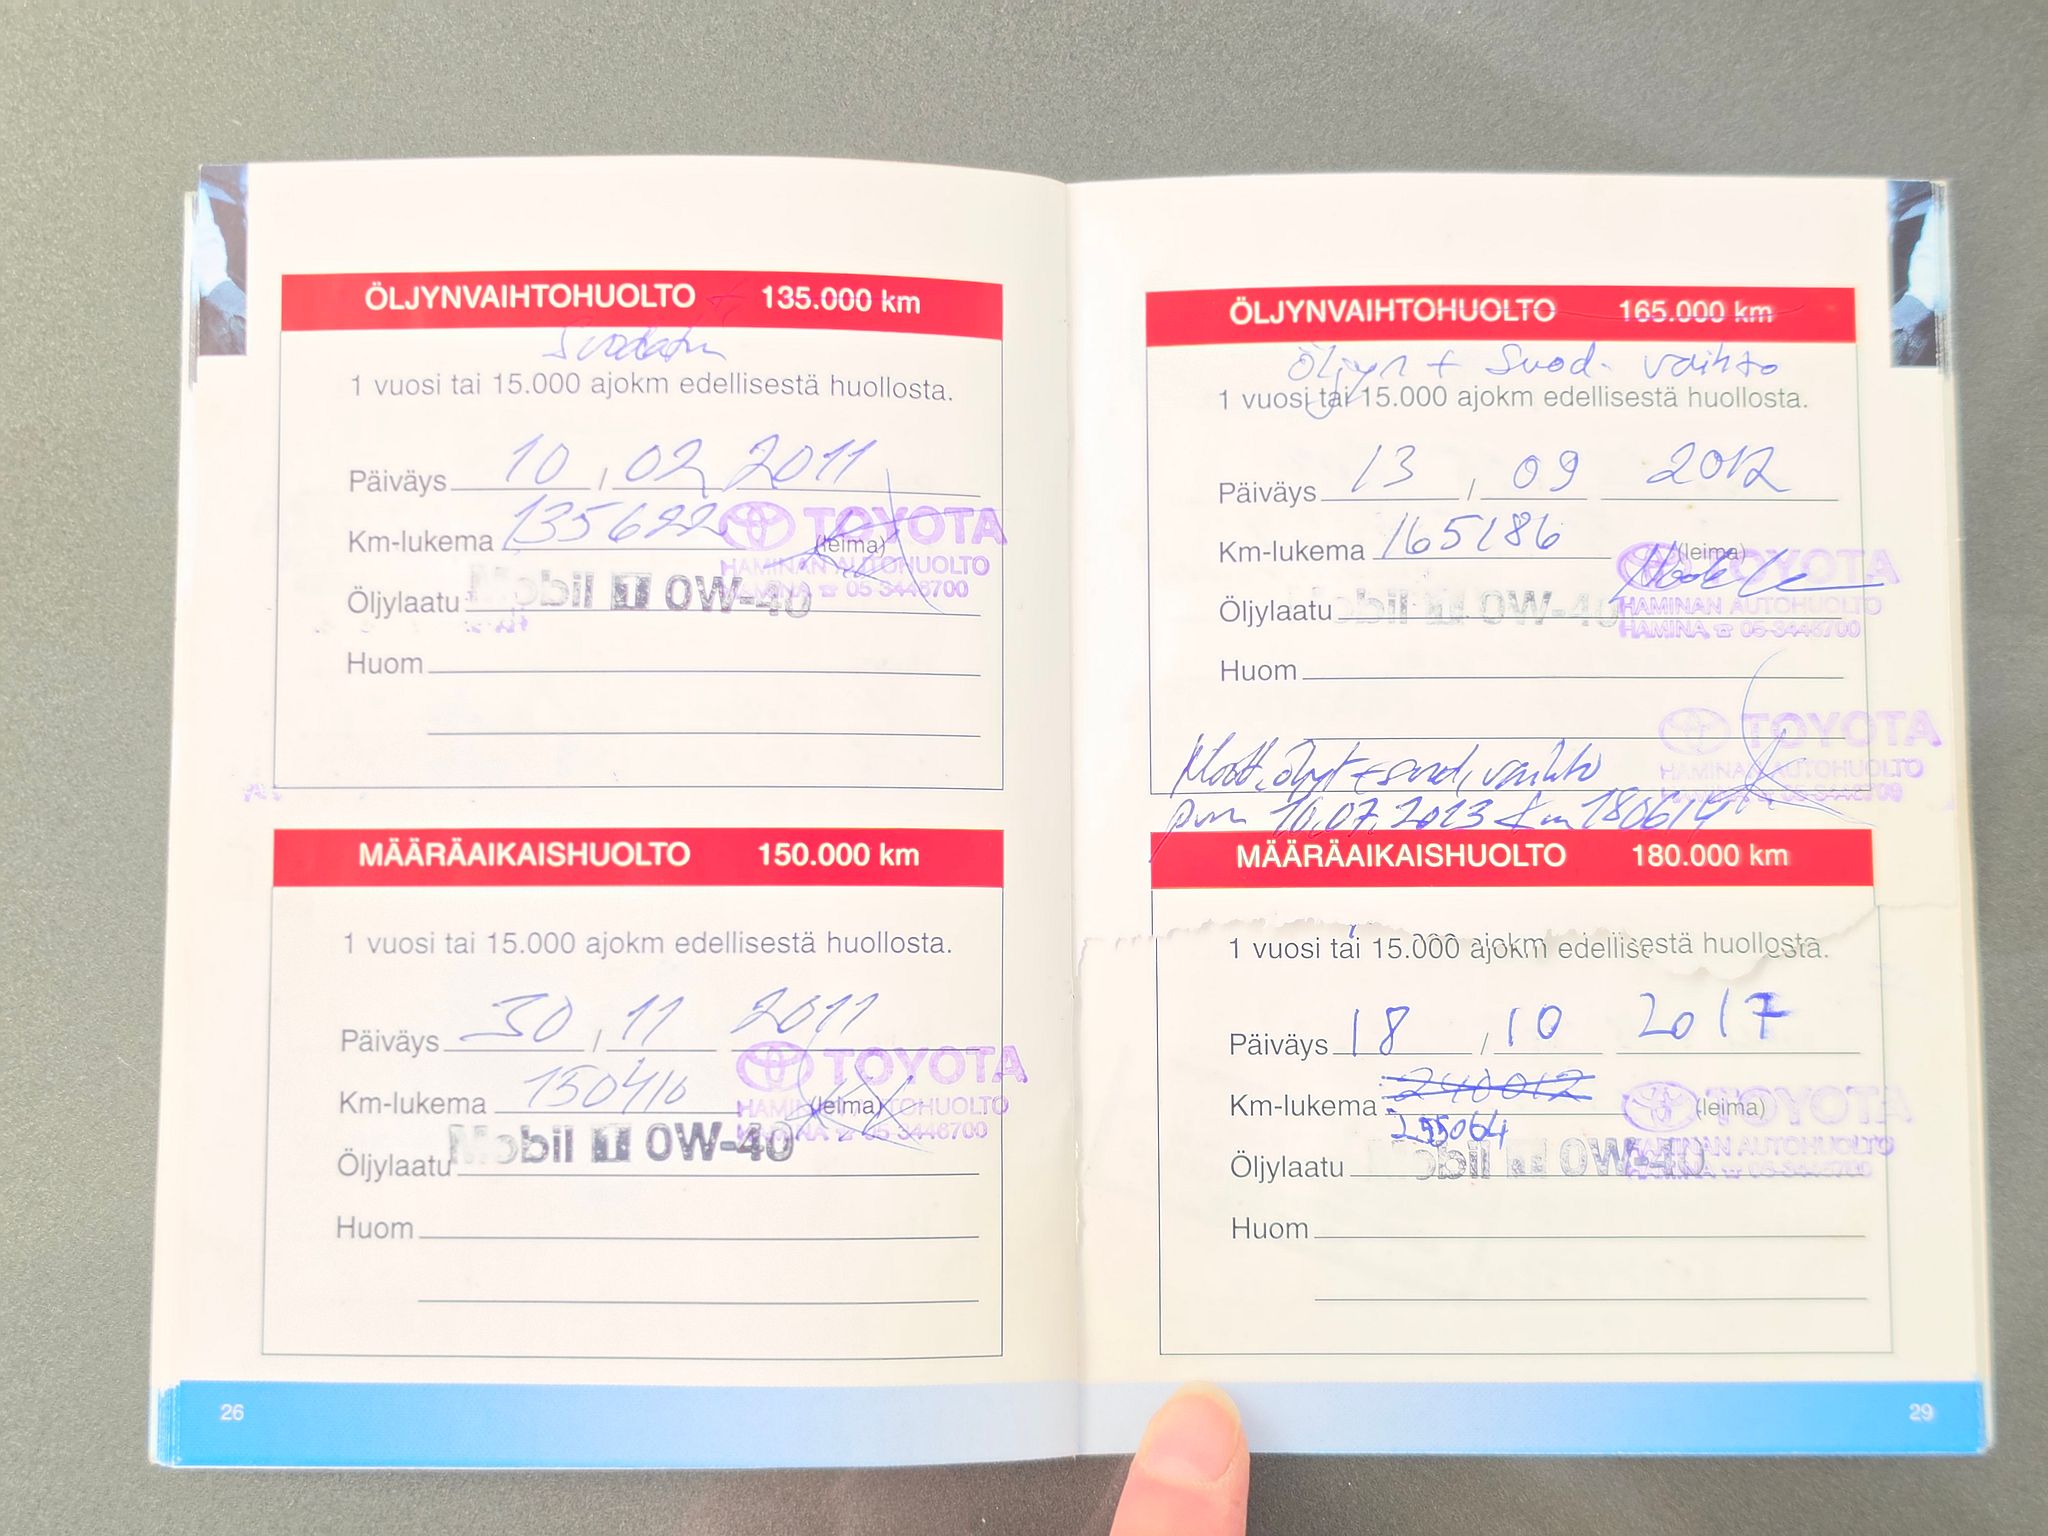 ÖLJYNVAIHTOHUOLTO + 135.000 km
Suodatin
1 vuosi tai 15.000 ajokm edellisestä huollosta.
Päiväys 10 / 02 2011
Km-lukema 135622 (leima)
TOYOTA
HAMINAN AUTOHUOLTO
HAMINA ☎ 05 3446700
Öljylaatu Mobil 1 0W-40
Huom
MÄÄRÄAIKAISHUOLTO 150.000 km
1 vuosi tai 15.000 ajokm edellisestä huollosta.
Päiväys 30 / 11 2011
Km-lukema 150410 (leima)
TOYOTA
HAMINAN AUTOHUOLTO
HAMINA ☎ 05 3446700
Öljylaatu Mobil 1 0W-40
Huom
26
ÖLJYNVAIHTOHUOLTO 165.000 km
Öljyn + Suod. vaihto
1 vuosi tai 15.000 ajokm edellisestä huollosta.
Päiväys 13 / 09 2012
Km-lukema 165186 (leima)
TOYOTA
HAMINAN AUTOHUOLTO
HAMINA ☎ 05-3446700
Öljylaatu
Huom
TOYOTA
HAMINAN AUTOHUOLTO
HAMINA ☎ 05-3446700
Moot. öljyt + suod. vaihto
pvm 10.07.2013 km 180614
MÄÄRÄAIKAISHUOLTO 180.000 km
1 vuosi tai 15.000 ajokm edellisestä huollosta.
Päiväys 18 / 10 2017
Km-lukema 240012 (leima)
255064
TOYOTA
HAMINAN AUTOHUOLTO
HAMINA ☎ 05-3446700
Öljylaatu Mobil 1 0W-40
Huom
29